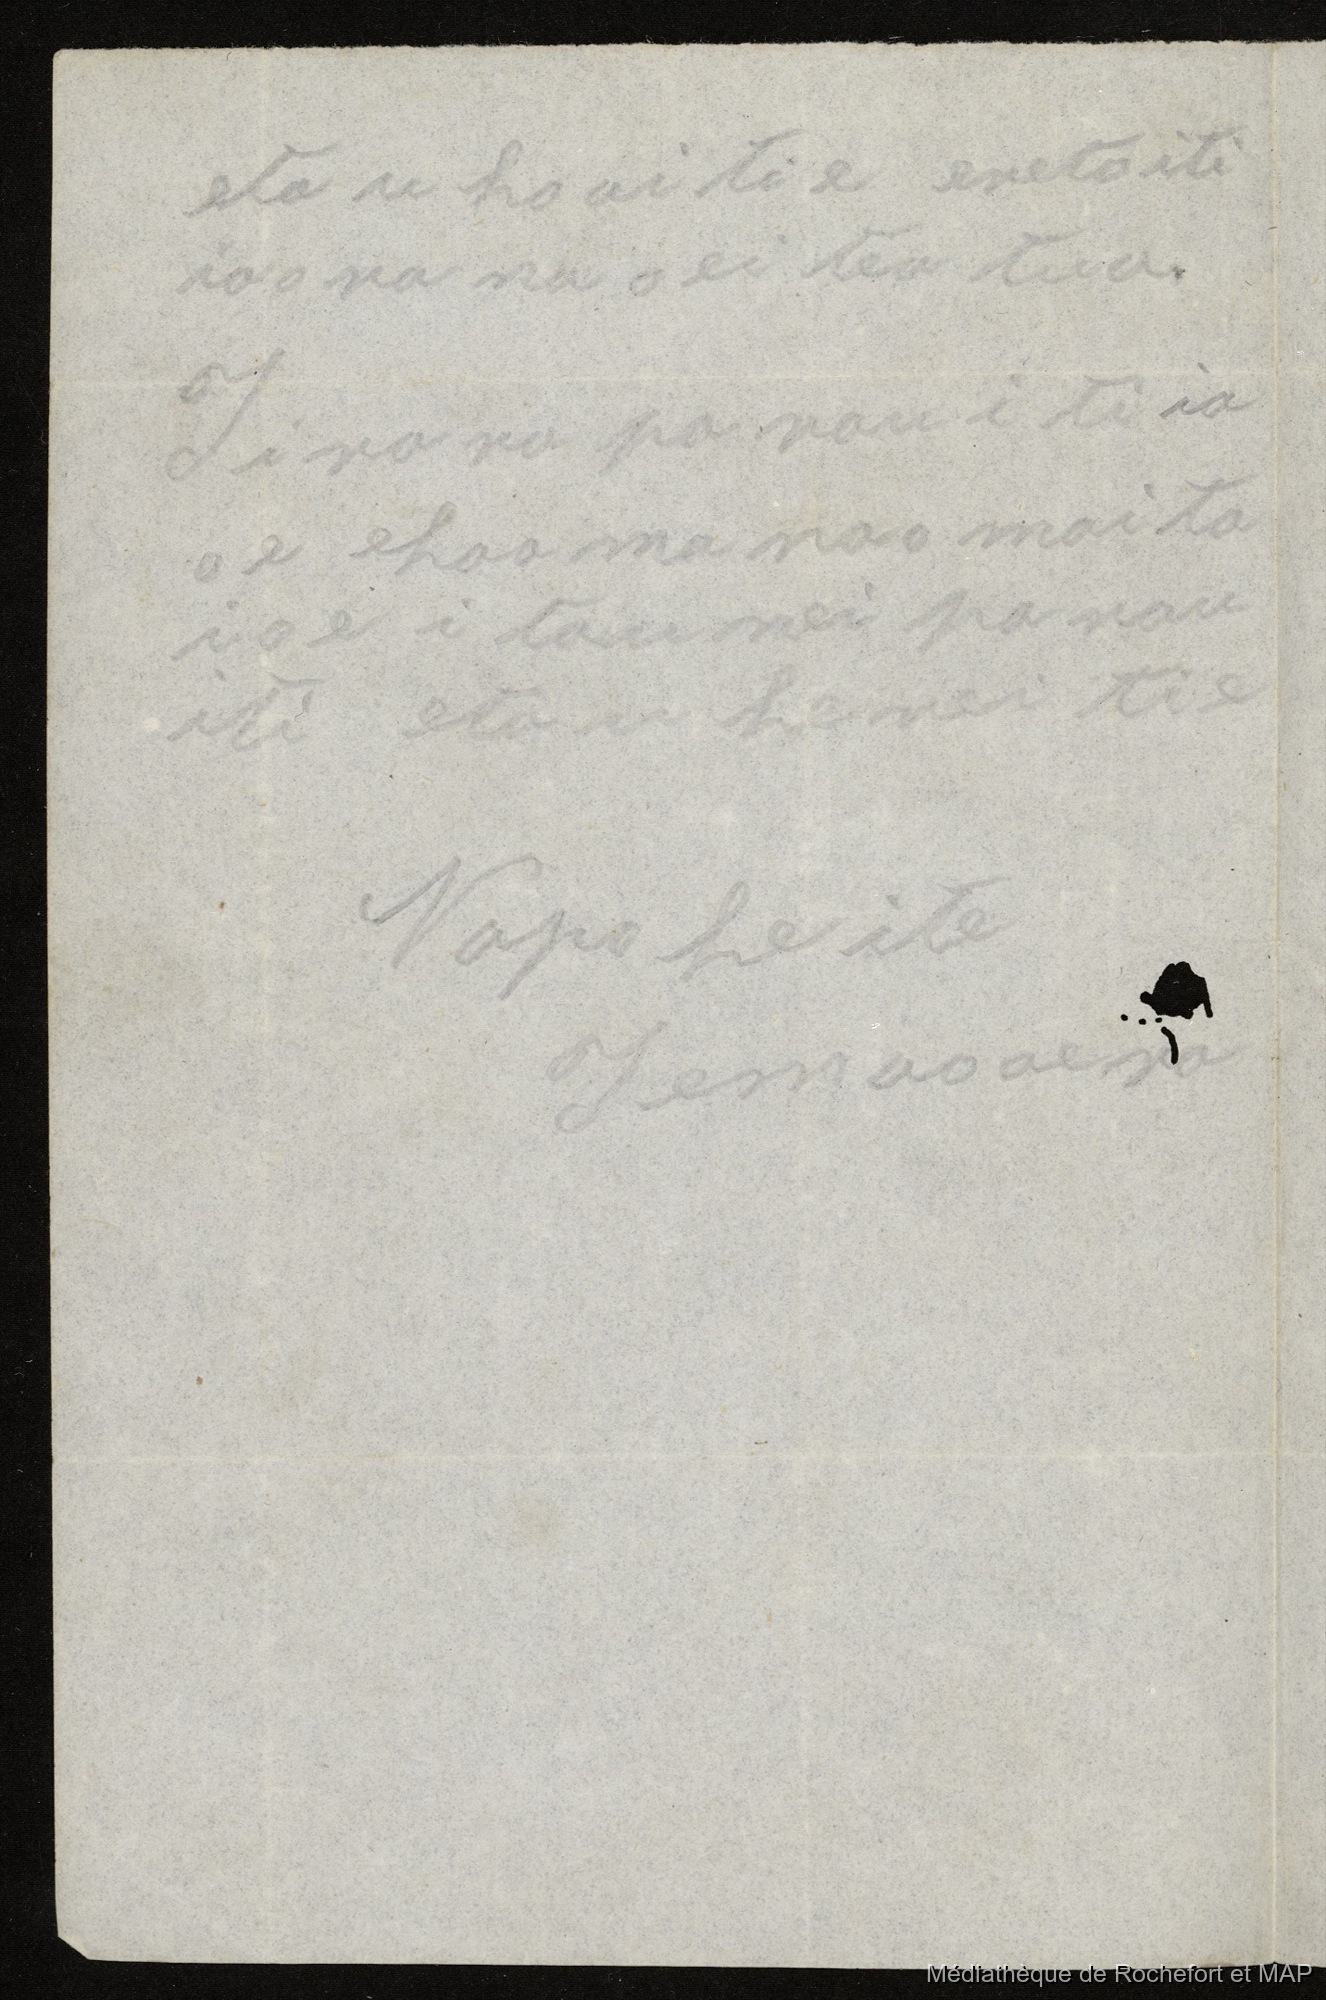 eta u hoai tie eretoiti
iaorana oei tea tua.
Tirara parau iti ia
oe ehoa ma nao maita
ioe i tau nei parau
iti eta u hemei tie
Na po he ite
Médiathèque de Rochefort et MAP